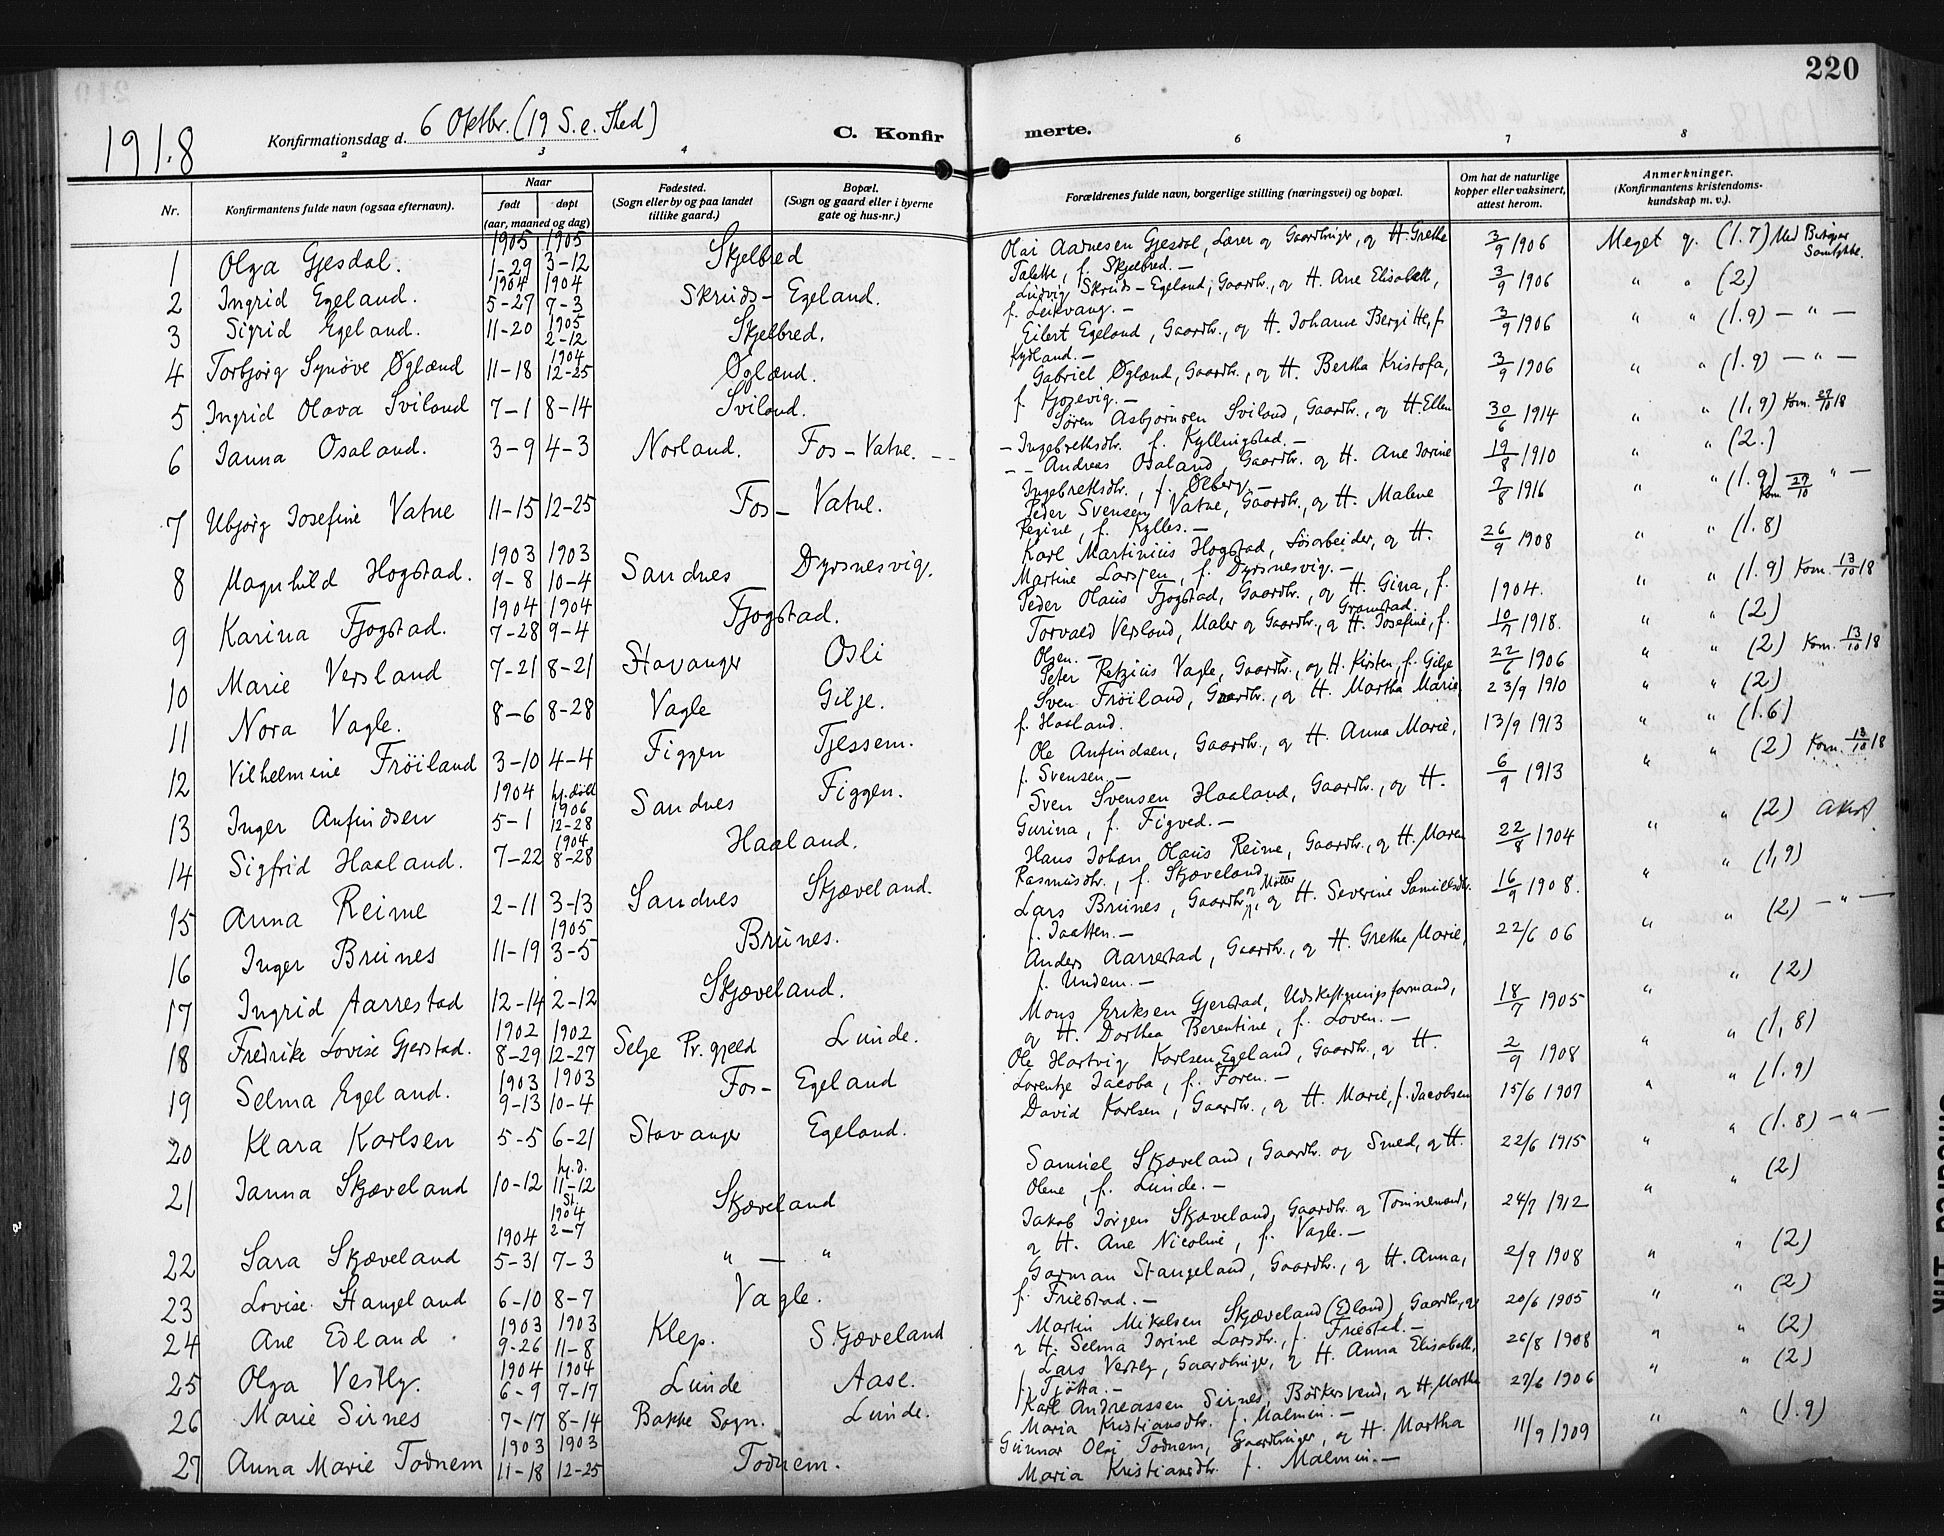 220
1918
Konfirmationsdag d. 6 Oktbr. (19 S. e. Tred)
C. Konfirmerte.
2 3 4 6 7 8
Nr.
Konfirmantens fulde navn (ogsaa efternavn).
Naar
født døpt
(aar, maaned og dag)
Fødested.
(Sogn eller by og paa landet
tillike gaard.)
Bopæl.
(Sogn og gaard eller i byerne
gate og hus-nr.)
Forældrenes fulde navn, borgerlige stilling (næringsvei) og bopæl.
Om hat de naturlige
kopper eller vaksinert,
attest herom.
Anmerkninger.
(Konfirmantens kristendoms-
kundskap m. v.).
1 Olga Gjesdal. 1905 1-29 1905 3-12 Skjelbred
Olai Aadnesen Gjesdal, Lærer og Gaardbruger, og H. Grethe
Talette, f. Skjelbred. — 3/9 1906 Meget g. (1.7) Med Bisps Samtykke.
2 Ingrid Egeland. 1904 5-27 1904 7-3 Skruds- Egeland.
Ludvig Skruds-Egeland, Gaardbr., og H. Ane Elisabeth,
f. Leikvang. — 3/9 1906 " " (2)
3 Sigrid Egeland. 11-20 1905 2-12 Skjelbred.
Eilert Egeland, Gaardbr., og H. Johanne Bergitte, f.
Kydland. — 3/9 1906 " " (1.9) — " —
4 Torbjørg Synøve Øglænd 11-18 1904 12-25 Øglænd.
Gabriel Øglænd, Gaardbr., og H. Bertha Kristofa,
f. Gjosevig. — 3/9 1906 " " (1.9) — " —
5 Ingrid Olava Sviland 7-1 8-14 Sviland.
Søren Asbjørnsen Sviland, Gaardbr., og H. Ellen
Ingebretsdtr. f. Kyllingstad. — 30/6 1914 " " (1,9) Kom. 27/10 18
6 Janna Osaland. 3-9 4-3 Norland. Fos-Vatne.
Andreas Osaland, Gaardbr. og H. Ane Torine
Ingebretsdtr., f. Ølberg. — 19/8 1910 " " (2.)
7 Ubjørg Josefine Vatne 11-15 12-25 Fos- Vatne.
Peder Svensen Vatne, Gaardbr., og H. Malene
Regine, f. Kylles. — 7/8 1916 " " (1.9) " — Kom 27/10
8 Magnhild Hogstad. 1903 9-8 1903 10-4 Sandnes Dyrsnesvig.
Karl Martinius Hogstad, Løsarbeider, og H.
Martine Larsen, f. Dyrsnesvig. — 26/9 1908 " " (1.8)
9 Karina Fjogstad. 1904 7-28 1904 9-4 Fjogstad.
Peder Olaus Fjogstad, Gaardbr., og H. Gina, f.
Gramstad. 1904. " " (1.9) Kom. 13/10 18
10 Marie Versland 7-21 8-21 Stavanger Osli
Torvald Versland, Maler og Gaardbr., og H. Josefine, f.
Olsen. — 10/7 1918. " " (2)
11 Nora Vagle. 8-6 8-28 Vagle Gilje.
Peter Retzius Vagle, Gaardbr., og H. Kirsten, f. Gilje 22/6 1906 " " (2) Kom. 13/10 18
12 Vilhelmine Frøiland 3-10 4-4 Figgen Tjessem.
Sven Frøiland, Gaardbr., og H. Martha Marie,
f. Haaland. 23/9 1910 " " (2)
13 Inger Anfindsen 1904 5-1 hj.døbt 1906 12-28 Sandnes Figgen.
Ole Anfindsen, Gaardbr., og H. Anna Marie,
f. Svensen. — 13/9 1913 " " (1.6)
14 Sigfrid Haaland. 7-22 1904 8-28 Haaland.
Sven Svensen Haaland, Gaardbr., og H.
Gurina, f. Figved. — 6/9 1913 " " (2) Kom. 13/10 18
15 Anna Reime 2-11 3-13 Sandnes Skjæveland.
Hans Johan Olaus Reime, Gaardbr., og H. Maren
Rasmusdtr., f. Skjæveland. — 22/8 1904 " " (2)
16 Inger Brunes 11-19 1905 3-5 Brunes.
Lars Brunes, Gaardbr. og Møller, og H. Severine Samuelsdtr.
f. Jaatten. — 16/9 1908. " " (1,9)
17 Ingrid Aarrestad 12-14 2-12 Skjæveland.
Anders Aarrestad, Gaardbr., og H. Grethe Marie,
f. Undem. — 22/6 06 " " (2) — " —
18 Fredrike Lovise Gjerstad. 1902 8-29 1902 12-27 Selje Pr.gjeld Lunde.
Mons Eriksen Gjerstad, Udskiftningsformand,
og H. Dorthea Berentine, f. Loven. — 18/7 1905 " " (2)
19 Selma Egeland. 1903 9-13 1903 10-4 Fos- Egeland
Ole Hartvig Karlsen Egeland, Gaardbr., og H.
Lorentze Jacoba, f. Foren. — 2/9 1908 " " (1,8)
20 Klara Karlsen 5-5 6-21 Stavanger Egeland.
David Karlsen, Gaardbr., og H. Marie, f. Jacobsen 15/6 1907 " " (1.9)
21 Janna Skjæveland 10-12 hj.d. 11-12 St. 1904 2-7 Skjæveland
Samuel Skjæveland, Gaardbr. og Smed, og H.
Olene, f. Lunde. — 22/6 1915 " " (1.8) — " —
22 Sara Skjæveland 1904 5-31 7-3 " — "
Jakob Jørgen Skjæveland, Gaardbr. og Tømmermand,
og H. Ane Nicoline, f. Vagle. — 24/7 1912 " " (2)
23 Lovise Stangeland 6-10 8-7 Vagle.
Gorman Stangeland, Gaardbr., og H. Anna,
f. Friestad. — 2/9 1908 " " (2)
24 Ane Edland 1903 9-26 1903 11-8 Klep. Skjæveland
Martin Mikalsen Skjæveland (Edland), Gaardbr., og
H. Selma Torine Larsdtr., f. Friestad. — 20/6 1905 " " (2)
25 Olga Vestly. 1904 6-9 1904 7-17 Lunde Aase.
Lars Vestly, Gaardbruger, og H. Anna Elisabeth,
f. Tjøtta. — 26/8 1908 " " (2)
26 Marie Sirnes 7-17 8-14 Bakke Sogn. Lunde.
Karl Andreassen Sirnes, Bødkersvend, og H. Martha
Maria Kristiansdtr. f. Malmin. — 27/6 1906 " " (2)
27 Anna Marie Todnem 1903 11-18 1903 12-25 Todnem.
Gunnar Olai Todnem, Gaardbruger, og H. Martha
Maria Kristiansdtr. f. Malmin. — 11/9 1909 " " (1.9)